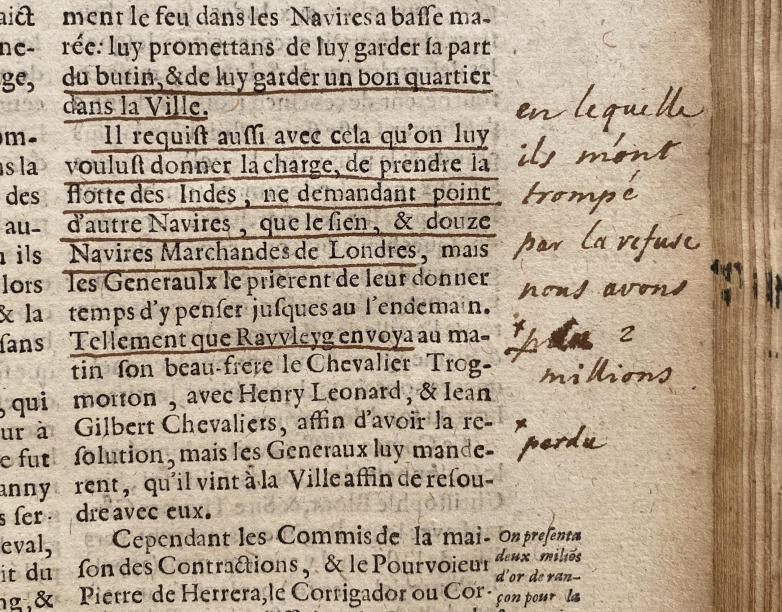 aict
ne-
ge,
om-
ns la
des
au-
n ils
lors
& la
sans
, qui
ur à
e fut
anny
s ser-
eval,
it du
ng, &
ment le feu dans les Navires a basse ma-
rée: luy promettans de luy garder sa part
du butin, & de luy garder un bon quartier
dans la Ville.
Il requist aussi avec cela qu'on luy
voulust donner la charge, de prendre la
flotte des Indes, ne demandant point
d'autre Navires, que le sien, & douze
Navires Marchandes de Londres, mais
les Generaulx le prierent de leur donner
temps d'y penser jusques au l'endemain.
Tellement que Ravvleyg envoya au ma-
tin son beau-frere le Chevalier Trog-
morton, avec Henry Leonard, & Iean
Gilbert Chevaliers, affin d'avoir la re-
solution, mais les Generaux luy mande-
rent, qu'il vint à la Ville affin de resou-
dre avec eux.
Cependant les Commis de la mai-
son des Contractions, & le Pourvoieur
Pierre de Herrera, le Corrigador ou Cor-
en lequelle
ils m'ont
trompé
par la refuse
nous avons
2
millions
perdu
On presenta
deux miliõs
d'or de ran-
çon pour la